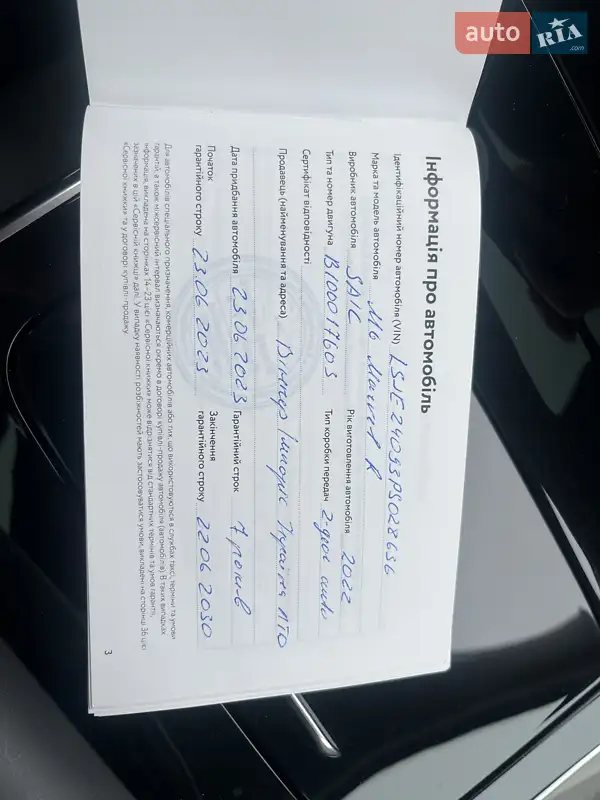 auto RIA .com
Інформація про автомобіль
Ідентифікаційний номер автомобіля (VIN) LSJE24093PS028636
Марка та модель автомобіля MG Marvel R
Виробник автомобіля SAIC Рік виготовлення автомобіля 2022
Тип та номер двигуна B10001760S Тип коробки передач
Сертифікат відповідності
Продавець (найменування та адреса) Віннер Імпортс Україна ЛТД
Дата придбання автомобіля 23.06 2023 Гарантійний строк 7 років
Початок гарантійного строку 23.06 2023 Закінчення гарантійного строку 22 06 2030
Для автомобілів спеціального призначення, комерційних автомобілів або тих, що використовуються в службах таксі, терміни та умови
гарантій, а також міжсервісний інтервал визначаються окремо в договорі купівлі-продажу автомобіля (автомобілів). В таких випадках
інформація, викладена на сторінках 14–23 цієї «Сервісної книжки» може відрізнятися від стандартних термінів та умов гарантії,
зазначених в цій «Сервісній книжці» далі. У випадку наявності розбіжностей мають застосовуватися умови, викладені на сторінці 36 цієї
«Сервісної книжки» та у договорі купівлі-продажу.
3